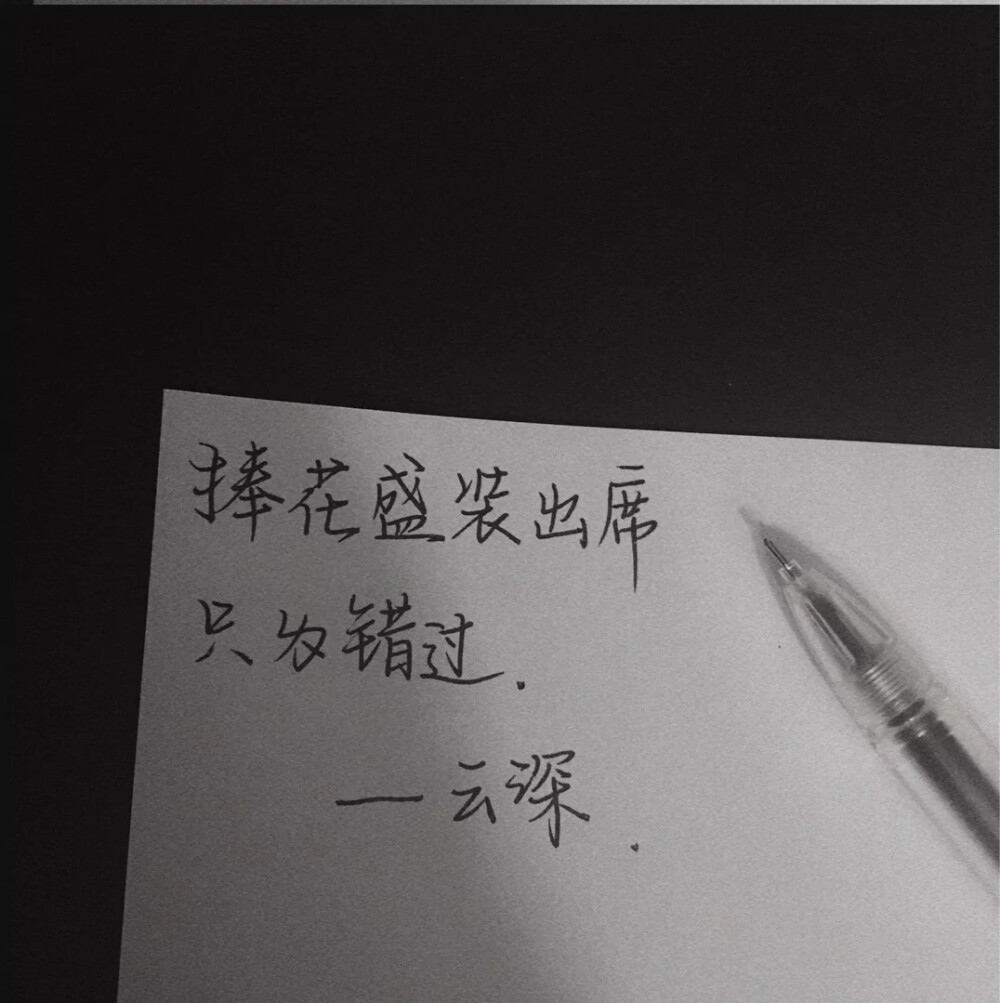 捧花盛装出席
只为错过.
—云深.